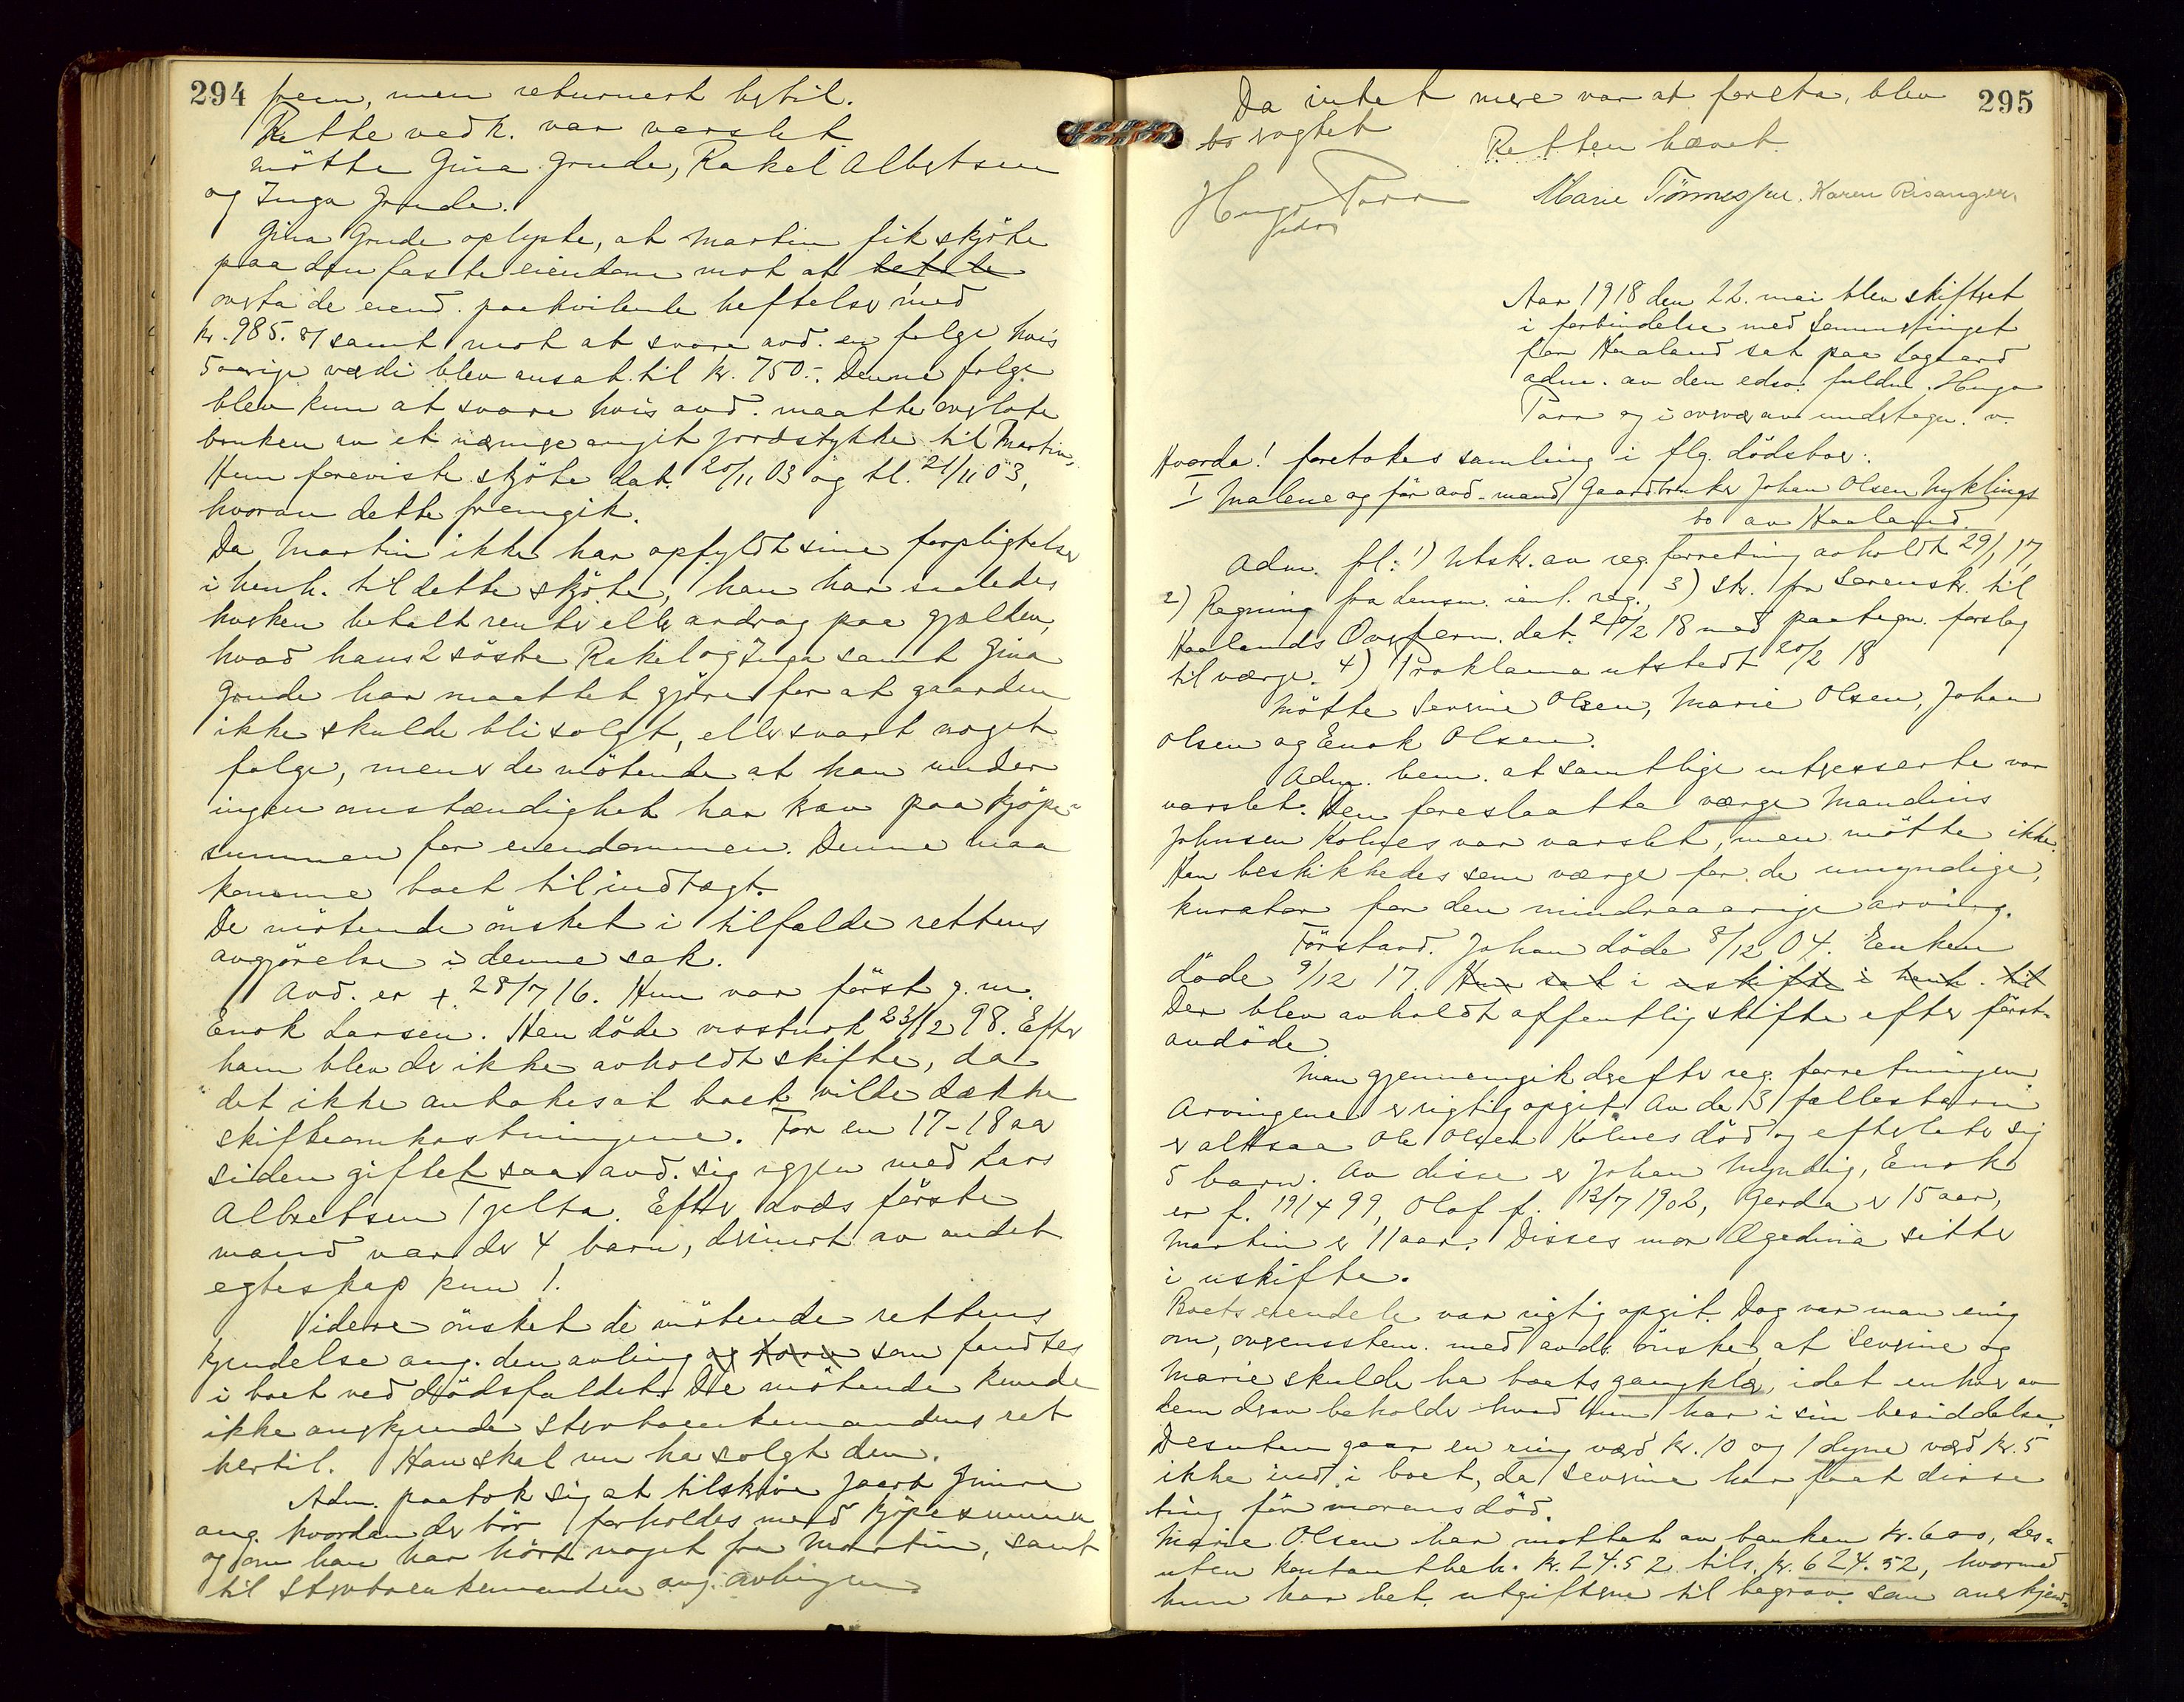 294
frem, men returnert hertil.
Rette vedk. var varslet.
Mötte Gina Grude, Rakel Albertsen
og Inga Grude.
Gina Grude oplyste, at Martin fik skjöte
paa den faste eiendom mot at betale
overta de eiend. paahvilende heftelser med
kr. 985.81 samt mot at svare avd. en folge hvis
5 aarige værdi blev ansat til kr. 750.-. Denne folge
blev kun at svare hvis avd. maatte overlate
bruken av et nærmere angit jordstykke til Martin.
Hun foreviste skjöte dat. 20/11 03 og tl. 21/11 03,
hvorav dette fremgik.
Da Martin ikke har opfyldt sine forpligtelser
i henh. til dette skjöte, han har saaledes
hverken betalt renter eller avdrag paa gjælden,
hvad hans 2 söstre Rakel og Inga samt Gina
Grude har maattet gjöre for at gaarden
ikke skulde bli solgt, eller svart noget
folge, mener de mötende at han under
ingen omstændighet har krav paa kjöpe-
summen for eiendommen. Denne maa
komme boet til indtægt.
De mötende önsket i tilfælde rettens
avgjörelse i denne sak.
Avd. er + 28/7 16. Hun var först g. m.
Enok Larsen. Han döde 23/12 98. Efter
ham blev der ikke avholdt skifte, da
det ikke antokes at boet vilde dække
skifteomkostningerne. For en 17-18 aar
siden giftet saa avd. sig igjen med Lars
Albretsen Tjelta. Efter avds förste
mand var der 4 barn, derimot av andet
egteskap kun 1.
Videre önsket de mötende rettens
kjendelse ang. den avling og korn som fandtes
i boet ved dödsfaldet. De mötende kunde
ikke anerkjende stervboenkemandens ret
hertil. Han skal nu ha solgt den.
Adm. paatok sig at tilskrive
ang. hvordan der bör forholdes med kjöpesummen
og om han har hört noget fra Martin, samt
til stervboenkemanden ang. avlingen
295
Da intet mere var at foreta, blev
Retten hævet.
Hugo
Marie Tönnessen. Karen Risanger.
Aar 1918 den 22. mai blev skifteret
i forbindelse med sommertinget
for Haaland sat paa Lagaard
adm. av den edsv. fuldm. Hugo
og i overvær av undertegn. v.
Hvorda! foretokes samling i flg. dödsboer:
I Malene og för avd. mand Gaardbruker Johan Olsen Myklings
bo av Haaland.
Adm. fl: 1) Utskr. av reg. forretning avholdt 29/1 17,
2) Regning fra lensm. ienl. reg., 3) Skr. fra Sorenskr. til
Haalands Overform. dat. 20/2 18 med paategn. forslag
til værge. 4) Proklama utstedt 20/2 18
Mötte Severine Olsen, Marie Olsen, Johan
Olsen og Enok Olsen.
Adm. bem. at samtlige interesserte var
varslet. Den foreslaatte værge Maudius
Johnsen Kolnes var varslet, men mötte ikke.
Han beskikkedes som værge for de umyndige,
kurator for den mindreaarige arving.
Förstavd. Johan döde 8/12 04. Enken
döde 9/12 17. Hun sat i uskifte i henh. til
Der blev avholdt offentlig skifte efter först-
avdöde.
Man gjennemgik derefter reg. forretningen.
Arvingene er rigtig opgit. Av de 3 fællesbarn
er altsaa Ole Olsen Kolnes död og efterlater sig
5 barn. Av disse er Johan myndig, Enok
er f. 19/4 99, Olaf f. 13/7 1902, Gerda er 15 aar,
Martin er 11 aar. Disses mor Ægedina sitter
i uskifte.
Boets eiendele var rigtig opgit. Dog var man enig
om, overensstem. med avds. önske, at Severine og
Marie skulde ha boets gangklær, idet enhver av
dem derav beholder hvad hun har i sin besiddelse.
Desuten gaar en ring værd kr. 10 og 1 dyne værd kr. 5
ikke ind i boet, da Severine har faat disse
ting för morens död.
Marie Olsen har mottat av banken kr. 600, des-
uten kontant beh. kr. 24.52 tils. kr. 624.52, hvormed
hun har bet. utgifterne til begrav. som anerkjend-